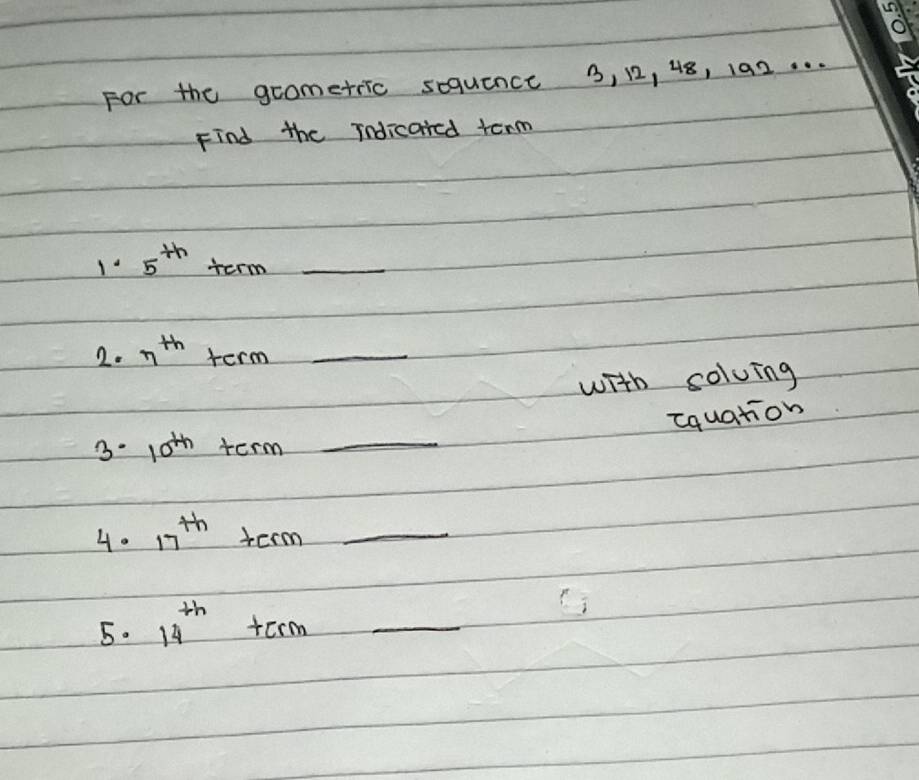 For the geometric sequence 3, 12, 48, 192 ...
Find the Indicated term
1. 5th term ____
2. 7th term ____
with solving
Equation
3. 10th term ____
4. 17th term ____
5. 14th term ____
0.5